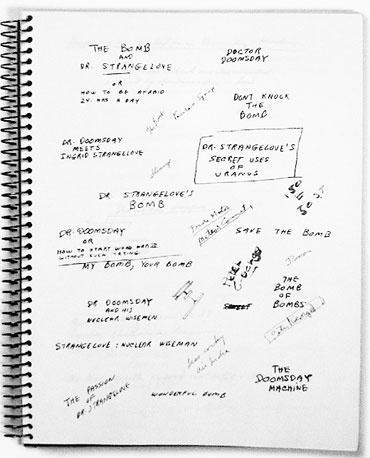 THE BOMB
AND
DR. STRANGELOVE
OR
HOW TO BE AFRAID
24 HRS A DAY
DOCTOR
DOOMSDAY
DON'T KNOCK
THE
BOMB
DR. DOOMSDAY
MEETS
INGRID STRANGELOVE
DR. STRANGELOVE'S
SECRET USES
OF
URANUS
DR STRANGELOVE'S
BOMB
DR. DOOMSDAY
OR
HOW TO START WORLD WAR III
WITHOUT EVEN TRYING
SAVE THE BOMB
MY BOMB, YOUR BOMB
DR DOOMSDAY
AND HIS
NUCLEAR WISEMEN
THE
BOMB
OF
BOMBS
STRANGELOVE: NUCLEAR WISEMAN
THE PASSION
OF
DR. STRANGELOVE
WONDERFUL BOMB
THE
DOOMSDAY
MACHINE